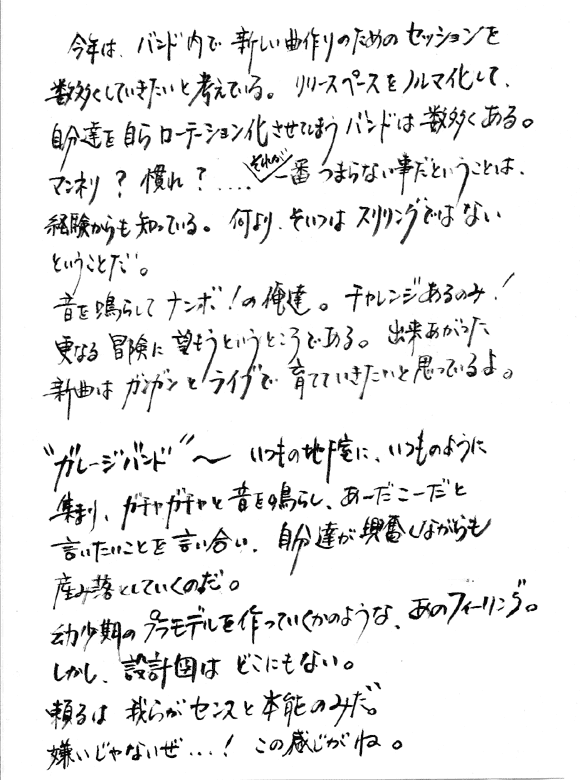 今年は、バンド内で新しい曲作りのためのセッションを
数多くしていきたいと考えている。リリースペースをノルマ化して、
自分達を自らローテーション化させてしまうバンドは数多くある。
マンネリ？慣れ？....それが一番つまらない事だということは、
経験からも知っている。何より、そいつはスリリングではない
ということだ。
音を鳴らしてナンボ！の俺達。チャレンジあるのみ！
更なる冒険に望もうというところである。出来あがった
新曲はガンガンとライブで育てていきたいと思っているよ。
“ガレージバンド”〜いつもの地下室に、いつものように
集まり、ガチャガチャと音を鳴らし、あーだこーだと
言いたいことを言い合い、自分達が興奮しながらも
産み落としていくのだ。
幼少期のプラモデルを作っていくかのような、あのフィーリング。
しかし、設計図はどこにもない。
頼るは我らがセンスと本能のみだ。
嫌いじゃないぜ...！この感じがね。